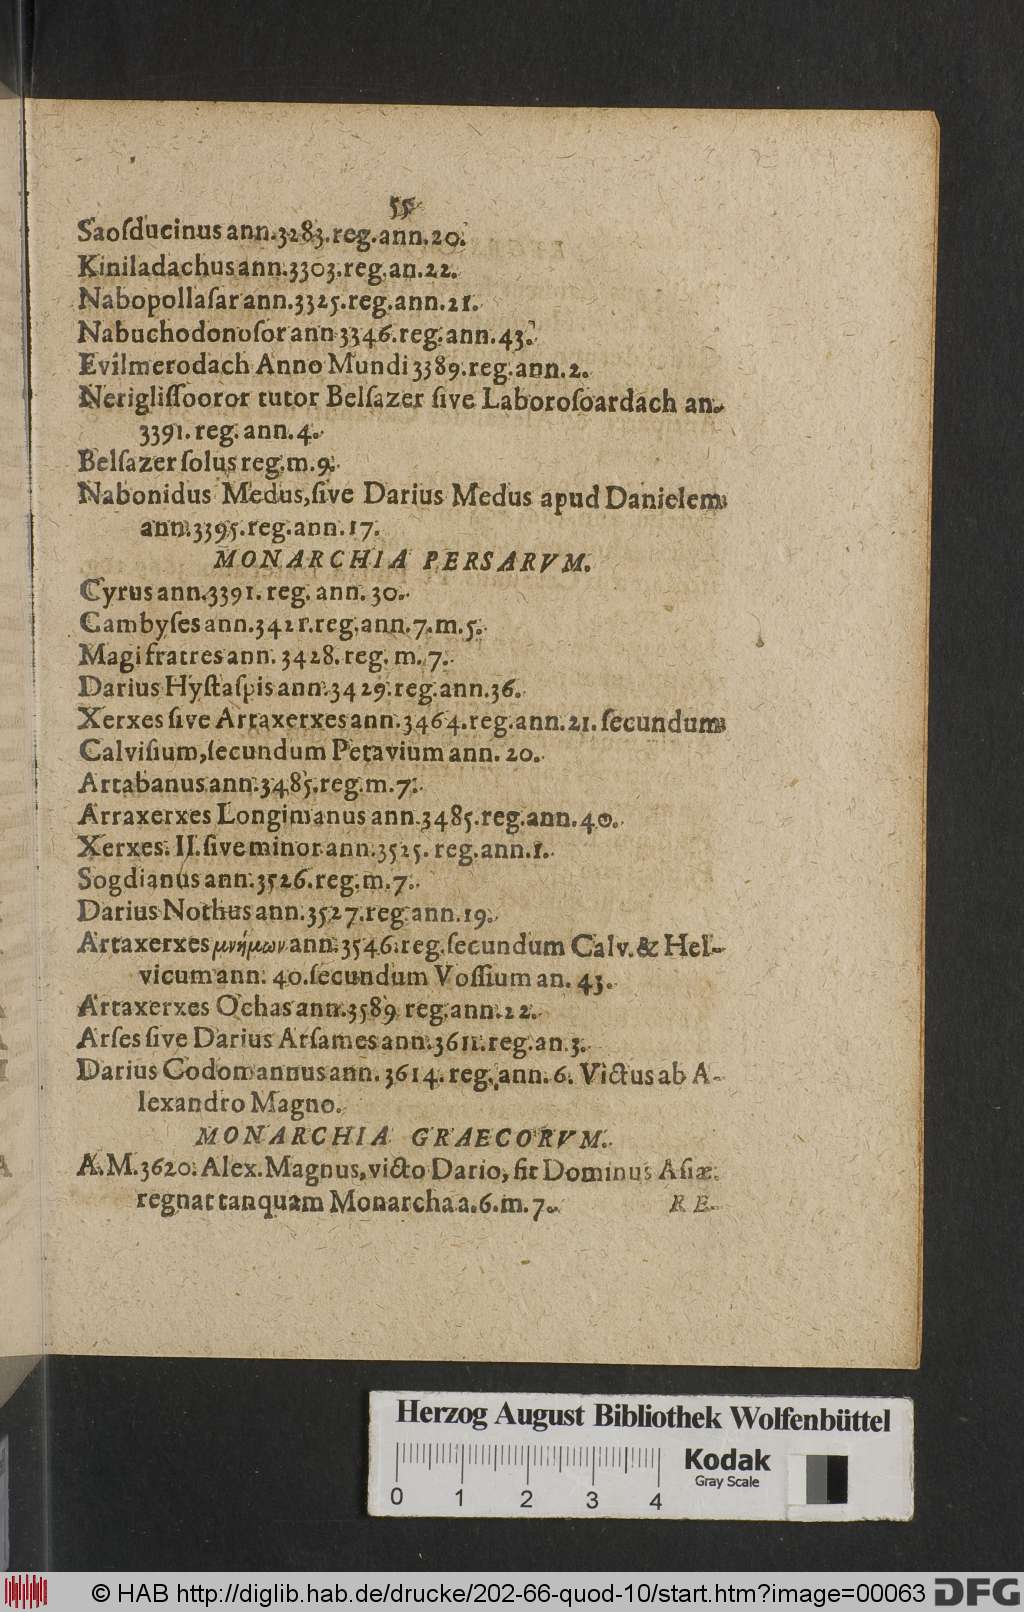 55
Saoſducinus ann.3283.reg.ann.20.
Kiniladachus ann.3303.reg.an.22.
Nabopollaſar ann.3325.reg.ann.21.
Nabuchodonoſor ann 3346.reg.ann.43.
Evilmerodach Anno Mundi 3389.reg.ann.2.
Nerigliſſooror tutor Belſazer ſive Laboroſoardach an.
3391.reg.ann.4.
Belſazer ſolus reg.m.9.
Nabonidus Medus,ſive Darius Medus apud Danielem
ann.3395.reg.ann.17.
MONARCHIA PERSARVM.
Cyrus ann.3391.reg.ann.30.
Cambyſes ann.3421.reg.ann.7.m.5.
Magi fratres ann.3428.reg.m.7.
Darius Hyſtaſpis ann.3429.reg.ann.36.
Xerxes ſive Artaxerxes ann.3464.reg.ann.21.ſecundum
Calviſium,ſecundum Petavium ann. 20.
Artabanus ann.3485.reg.m.7.
Arraxerxes Longimanus ann.3485.reg.ann.40.
Xerxes. II.ſive minor ann.3525. reg.ann.1.
Sogdianus ann.3526.reg.m.7.
Darius Nothus ann.3527.reg.ann.19.
Artaxerxes μνήμων ann.3546.reg.ſecundum Calv.& Hel-
vicum ann. 40.ſecundum Voſſium an. 43.
Artaxerxes Ochas ann.3589 reg.ann.22.
Arſes ſive Darius Arſames ann.3611.reg.an.3.
Darius Codomannus ann.3614.reg.ann.6. Victus ab A-
lexandro Magno.
MONARCHIA GRAECORVM.
A.M.3620.Alex.Magnus,victo Dario,fit Dominus Aſiæ.
regnat tanquam Monarcha a.6.m.7.
RE-
Herzog August Bibliothek Wolfenbüttel
Kodak
Gray Scale
0 1 2 3 4
© HAB http://diglib.hab.de/drucke/202-66-quod-10/start.htm?image=00063
DFG